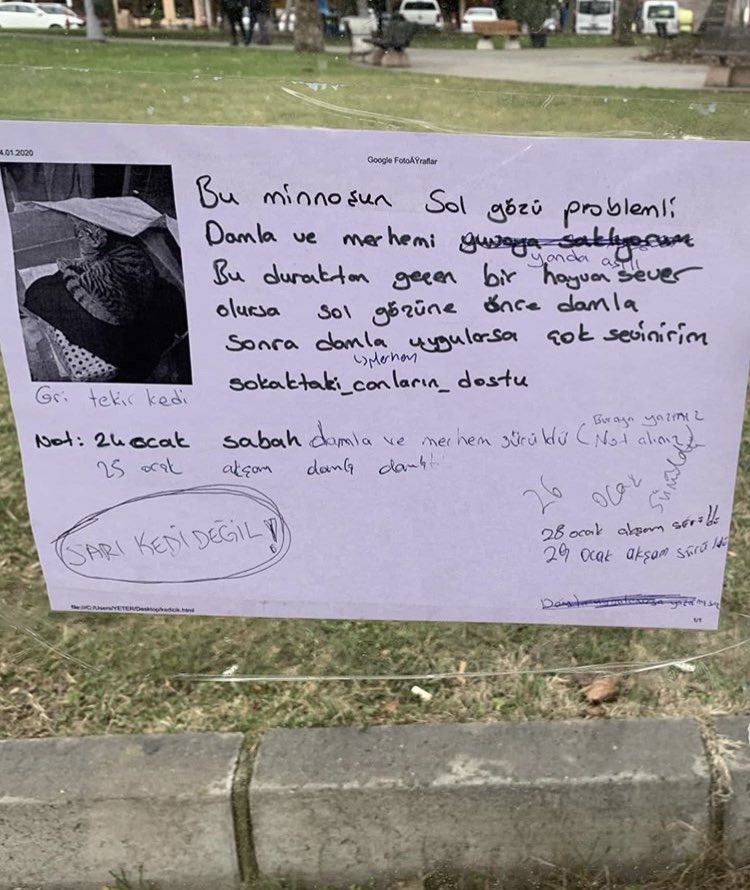 4.01.2020
Google FotoÄŸraflar
Bu minnoşun Sol gözü problemli
Damla ve merhemi yuvaya saklıyorum
yanda asılı
Bu duraktan geçen bir hayvan sever
olursa sol gözüne önce damla
sonra damla uygularsa çok sevinirim
↳ Merhem
sokaktaki_canların_dostu
Gri tekir kedi
Not: 24 ocak sabah damla ve merhem sürüldü (Buraya yazınız
Not alınız)
25 ocak akşam damla
26 ocak sürüldü
28 ocak akşam sürüldü
29 Ocak akşam sürüldü
SARI KEDİ DEĞİL!
file:///C:/Users/YETER/Desktop/kedicik.html
1/1